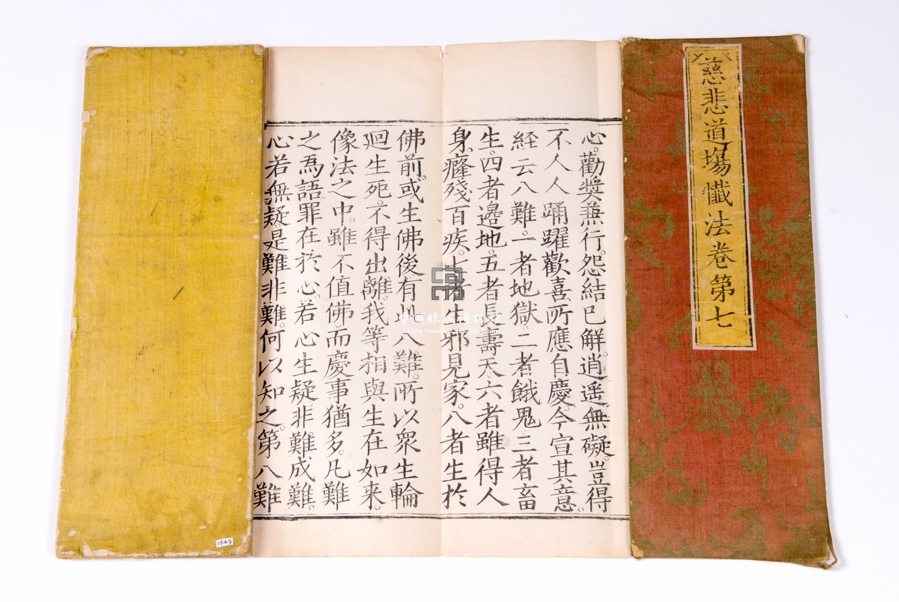 慈悲道場懺法卷第七
心。勸奬兼行。怨結已解。逍遥無礙。豈得
不人人踊躍歡喜。所應自慶。今宣其意。
経云八難。一者地獄。二者餓鬼。三者畜
生。四者邉地。五者長壽天。六者雖得人
身。癃殘百疾。七者生邪見家。八者生於
佛前。或生佛後。有此八難。所以衆生輪
迴生死。不得出離。我等相與生在如來。
像法之中。雖不值佛。而慶事猶多。凡難
之為語。罪在於心。若心生疑。非難成難。
心若無疑。是難非難。何以知之。第八難